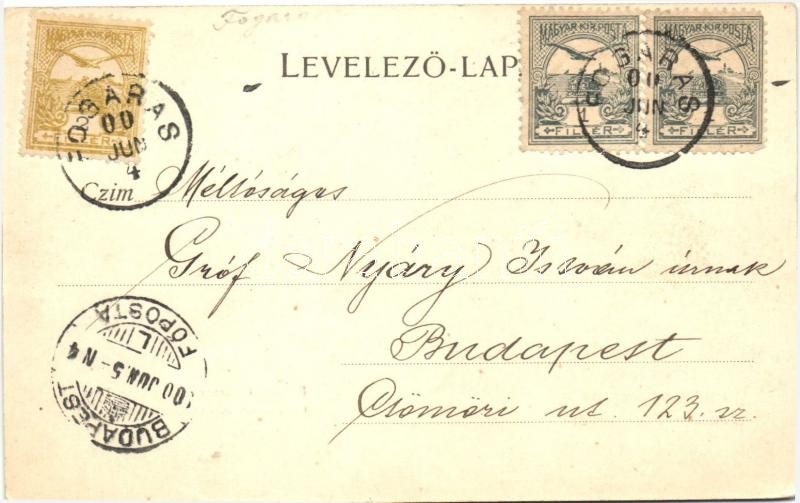 Fogaras
MAGYAR·KIR·POSTA
FILLÉR
MAGYAR·KIR·POSTA
FILLÉR
MAGYAR·KIR·POSTA
FILLÉR
FOGARAS
00
JUN
4
FOGARAS
00
JUN
4
LEVELEZŐ-LAP
Czim Méltóságos
Gróf Nyáry István úrnak
Budapest
Csömöri ut. 123. sz.
BUDAPEST
00 JUN. 5 - N 4
FŐPOSTA